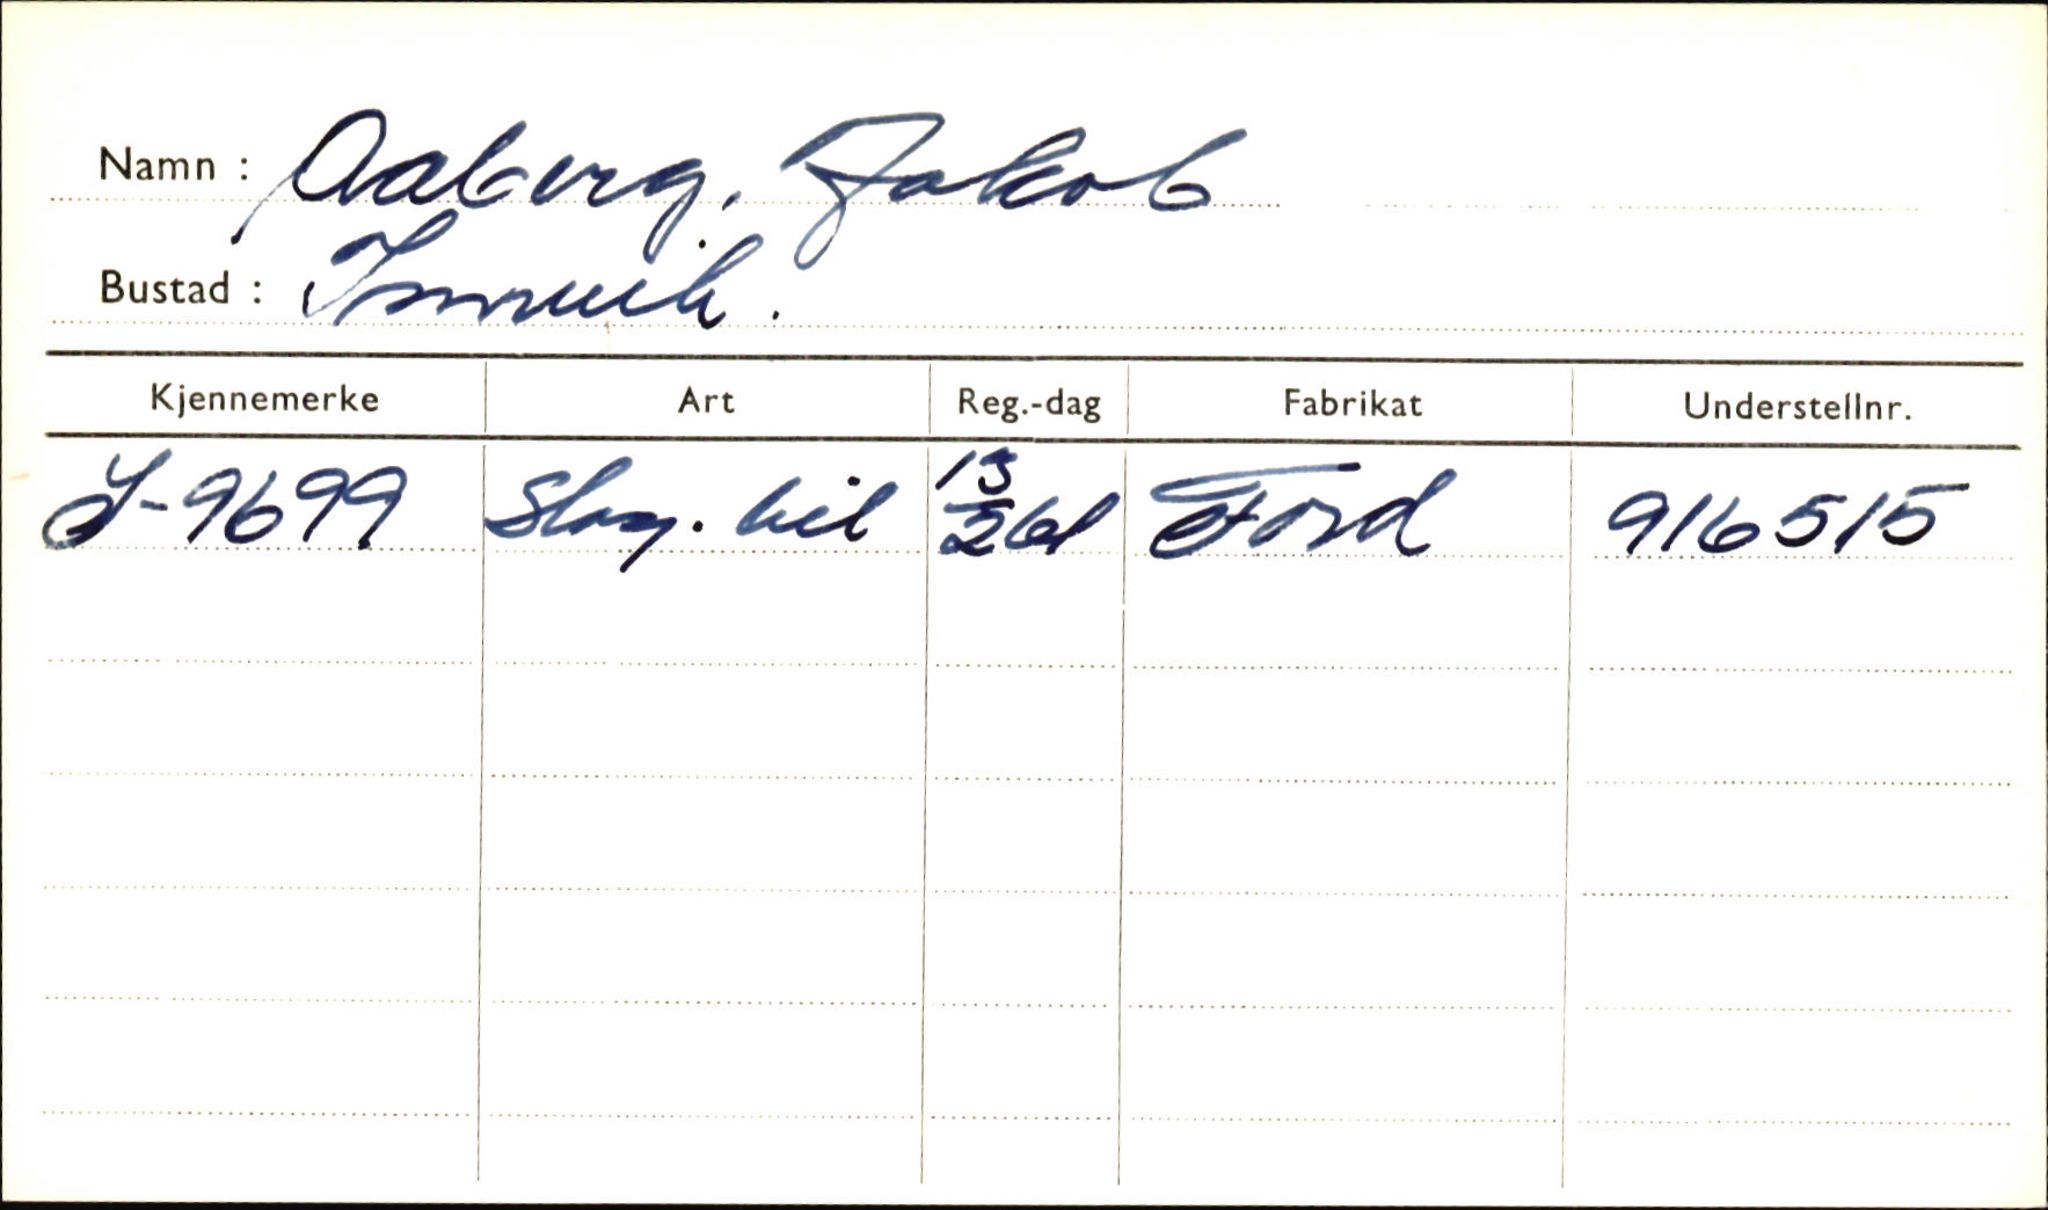 Namn : Aaberg, Jakob
Bustad : Innvik.
Kjennemerke Art Reg.-dag Fabrikat Understellnr.
S-9699 Slag. bil 13/2 61 Ford 916515